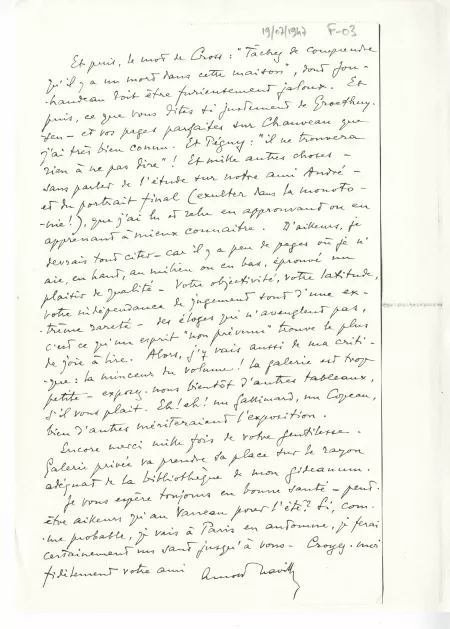 19/07/1947 F-03
Et puis, le mot de Cross : "Tâchez de comprendre
qu'il y a un mort dans cette maison", dont Jou-
-handeau doit être furieusement jaloux. Et
puis, ce que vous dites si justement de Groethuy-
-sen - et vos pages parfaites sur Chauveau que
j'ai très bien connu. Et Péguy : "il ne trouvera
rien à ne pas dire" ! Et mille autres choses -
sans parler de l'étude sur notre ami André -
et du portrait final (exulter dans la monoto-
-nie !), que j'ai lu et relu en approuvant ou en
apprenant à mieux connaître. D'ailleurs, je
devrais tout citer - car il y a peu de pages où je n'
aie, en haut, au milieu ou en bas, éprouvé un
plaisir de qualité - Votre objectivité, votre latitude,
votre indépendance de jugement sont d'une ex-
-trême rareté - des éloges qui n'aveuglent pas,
c'est ce qu'un esprit "non prévenu" trouve le plus
de joie à lire. Alors, j'y vais aussi de ma criti-
-que : la minceur du volume ! la galerie est trop
petite - exposez-nous bientôt d'autres tableaux,
s'il vous plait. Eh ! eh ! un Gallimard, un Copeau,
bien d'autres mériteraient l'exposition.
Encore merci mille fois de votre gentillesse.
Galerie privée va prendre sa place sur le rayon
adéquat de la bibliothèque de mon gideanum.
Je vous espère toujours en bonne santé - peut-
être ailleurs qu'au Vaneau pour l'été ? Si, com-
-me probable, je vais à Paris en automne, je ferai
certainement un saut jusqu'à vous - Croyez-moi
fidèlement votre ami Arnold Naville